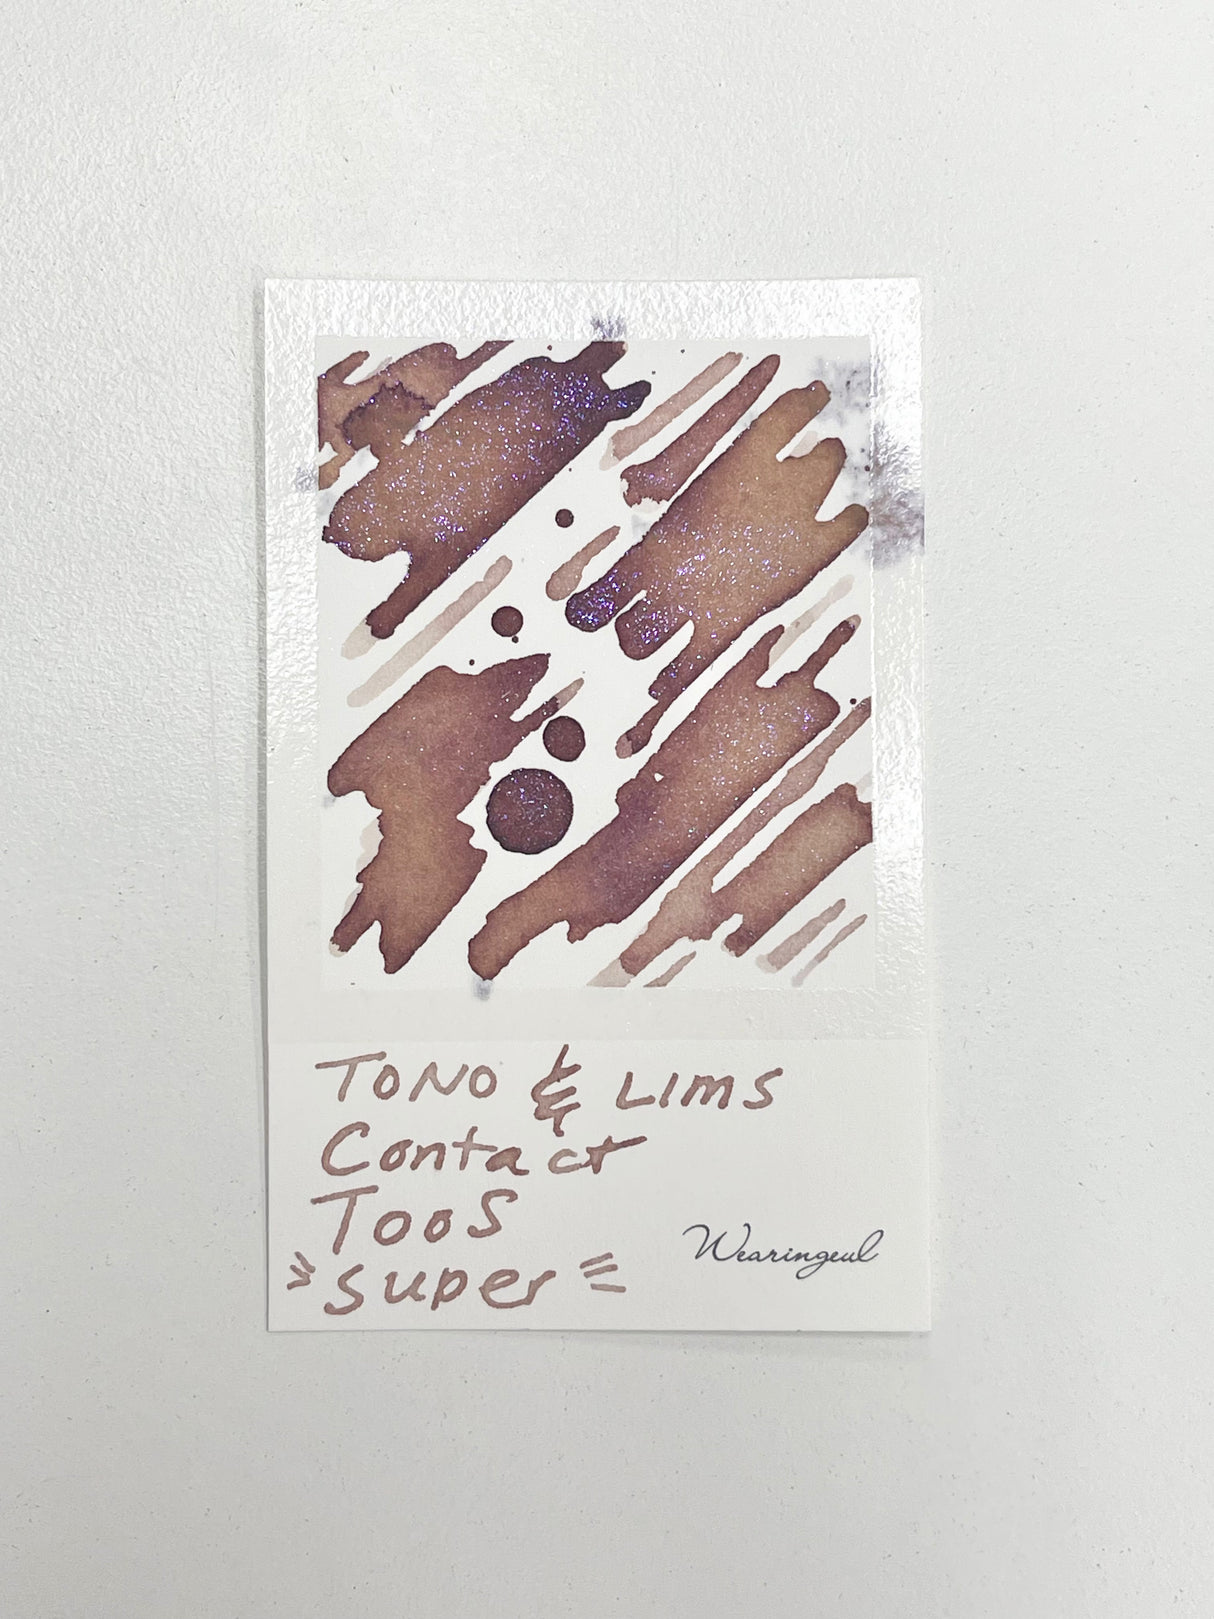 TONO & LIMS
Contact
TooS
"super"
Wearingeul